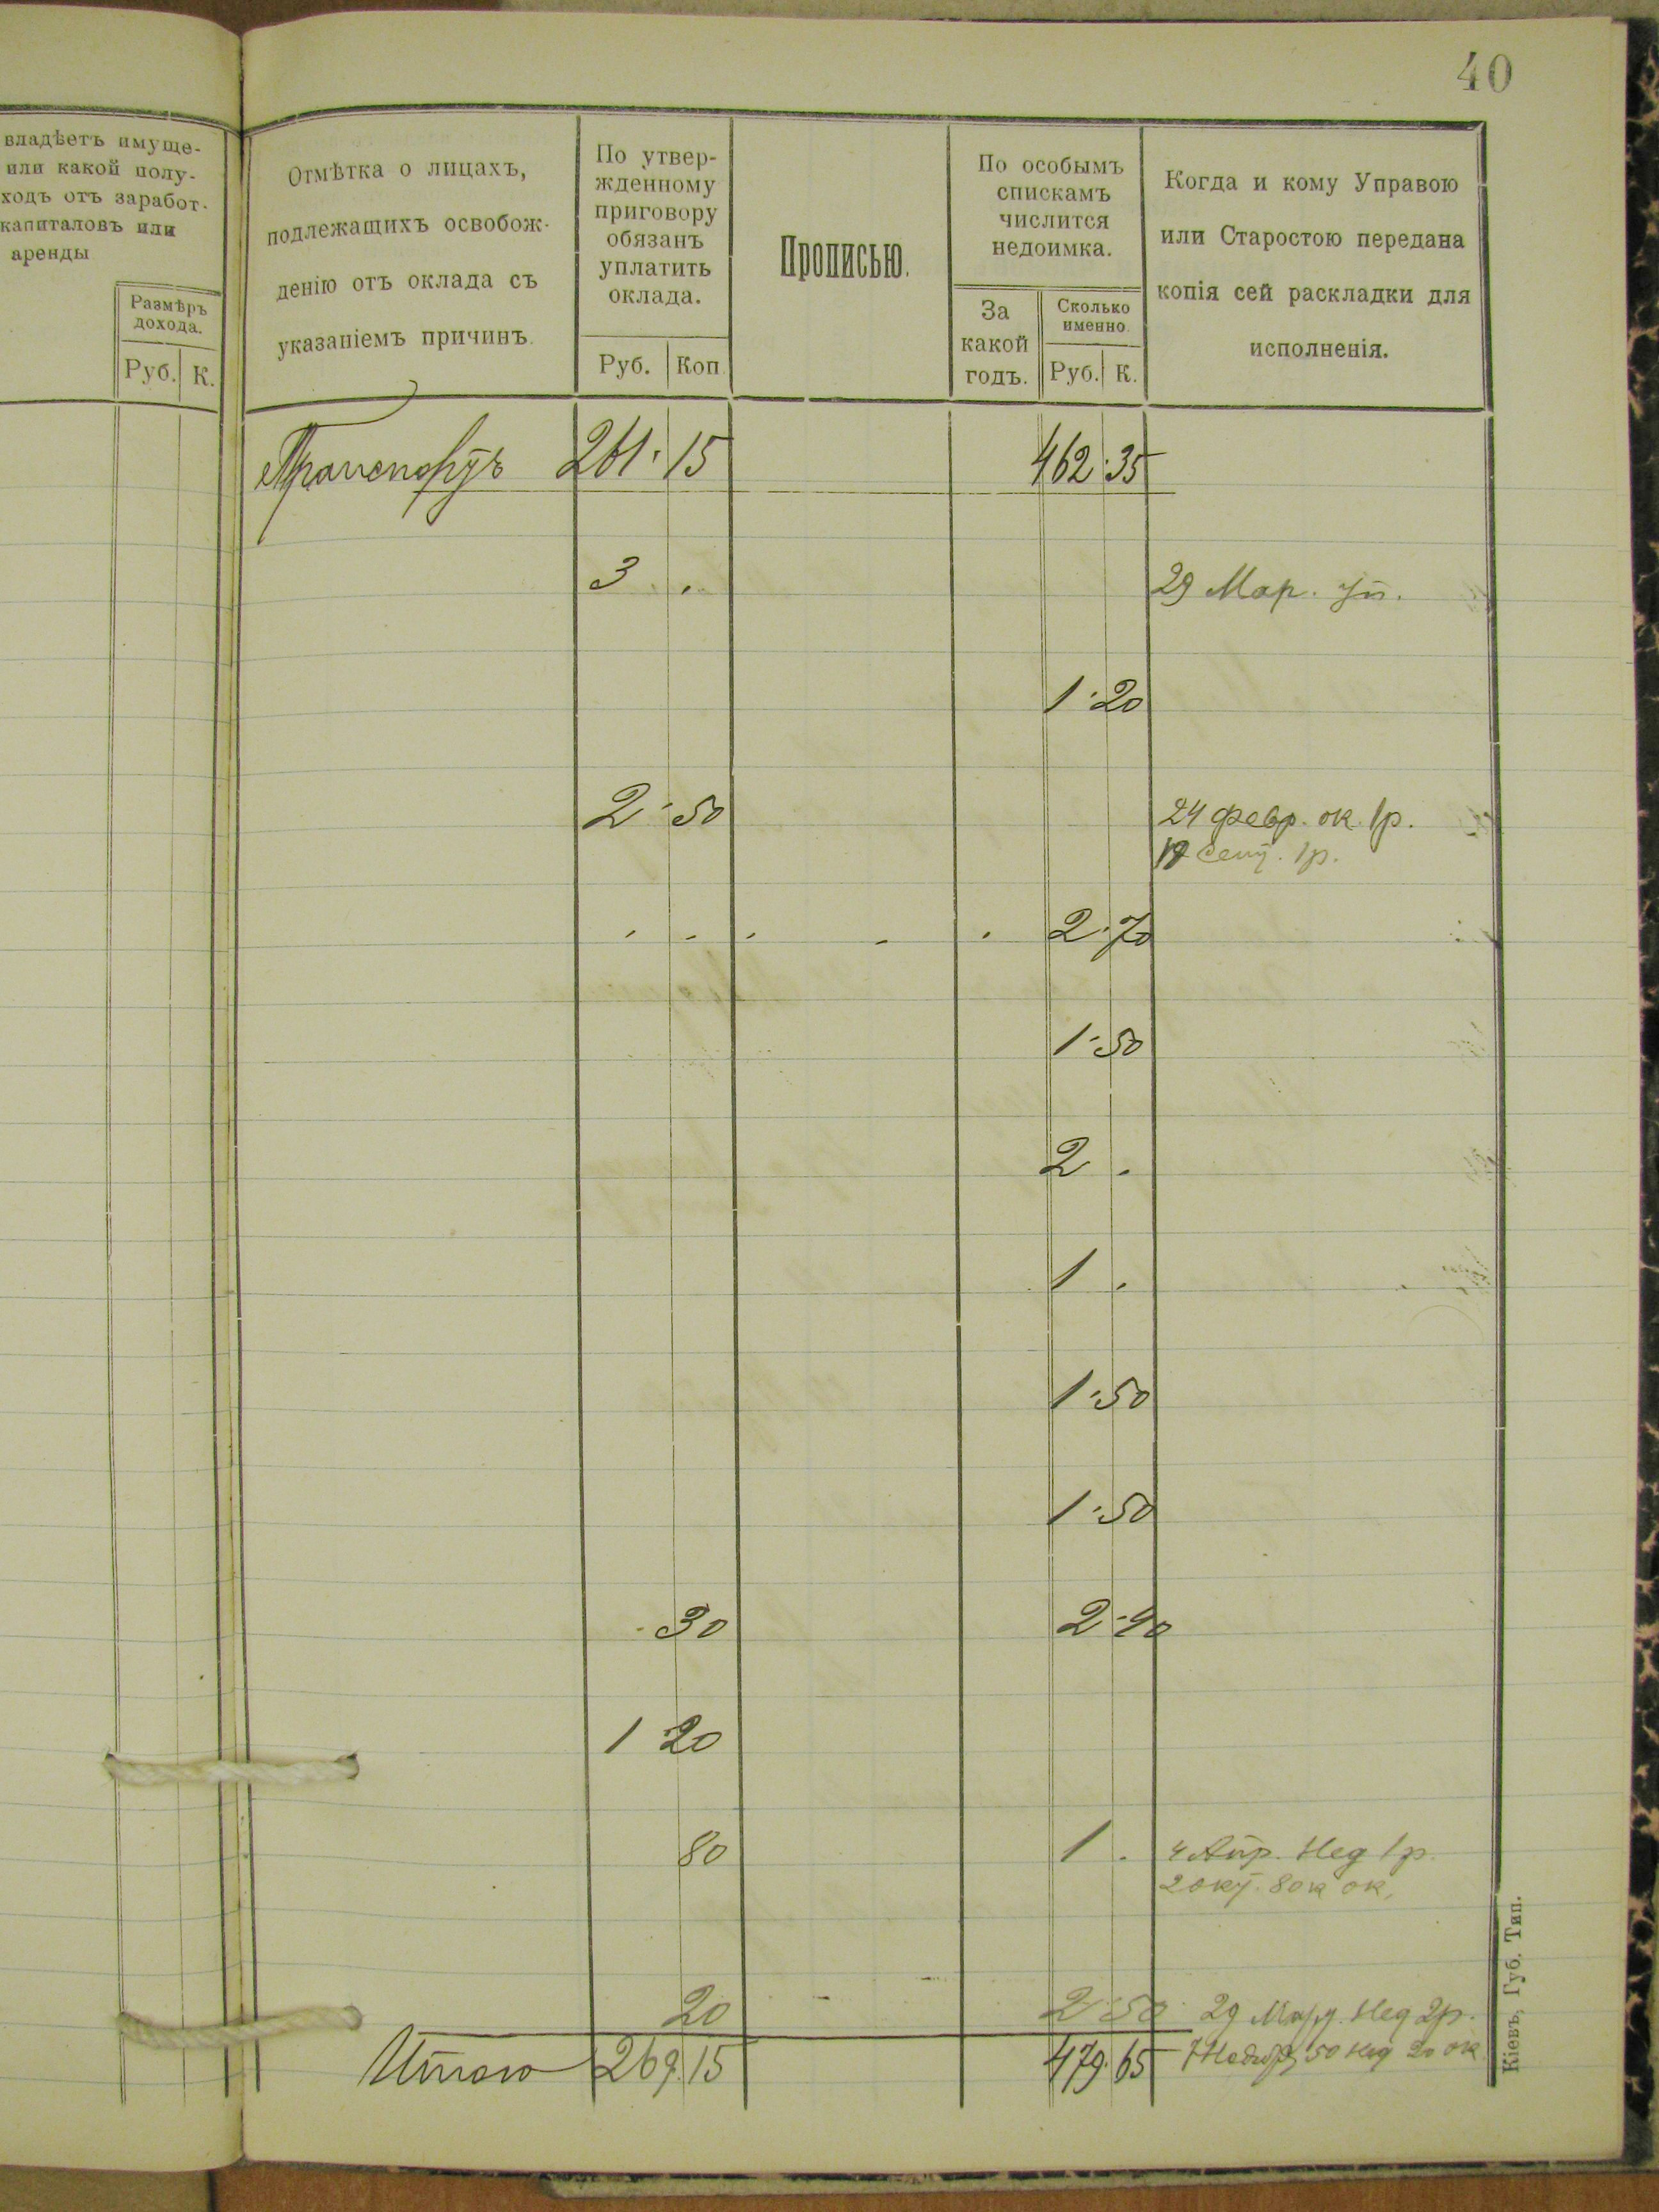 40
владѣетъ имуще-
или какой полу-
ходъ отъ заработ.
капиталовъ или
аренды
Размѣръ
дохода.
Руб. К.
Отмѣтка о лицахъ,
подлежащихъ освобож-
денію отъ оклада съ
указаніемъ причинъ.
По утвер-
жденному
приговору
обязанъ
уплатить
оклада.
Руб. Коп.
Прописью.
По особымъ
спискамъ
числится
недоимка.
За
какой
годъ.
Сколько
именно.
Руб. К.
Когда и кому Управою
или Старостою передана
копія сей раскладки для
исполненія.
Транспортъ 261 15 462 35
3 . 29 Мар. уп.
1 20
2 50 24 февр. ок. 1р.
Сент. 1р.
. . . . . 2 70
1 50
2 .
1 .
1 50
1 50
30 2 40
1 20
80 1 . 4 Апр. Нед 1р.
2 окт. 80к ок.
20 2 50 29 Нед 2р.
Итого 269 15 479 65 50 Нед 20 ок
Кіевъ, Губ. Тип.